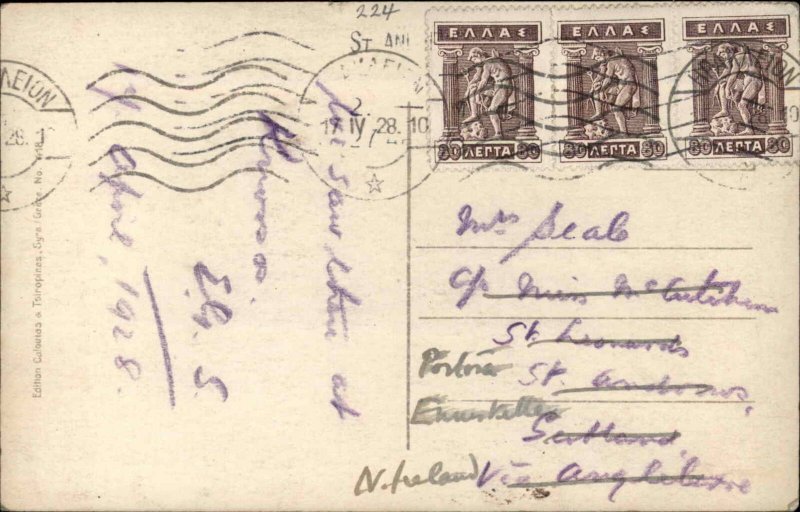 224
St ANI
ΕΛΛΑΣ ΕΛΛΑΣ ΕΛΛΑΣ
80 ΛΕΠΤΑ 80 80 ΛΕΠΤΑ 80 80 ΛΕΠΤΑ 80
ΗΡΑΚΛΕΙΟΝ
17 IV 28. 10
We saw these at
Knossos.
E. G. S.
17 April, 1928.
Mrs Seale
c/o Miss McCutcheon
St. Leonards
St. Andrews,
Scotland,
Via Angleterre
Portora
Enniskillen
N. Ireland
Edition Caloutas & Tsiropinas, Syra (Grèce) No.